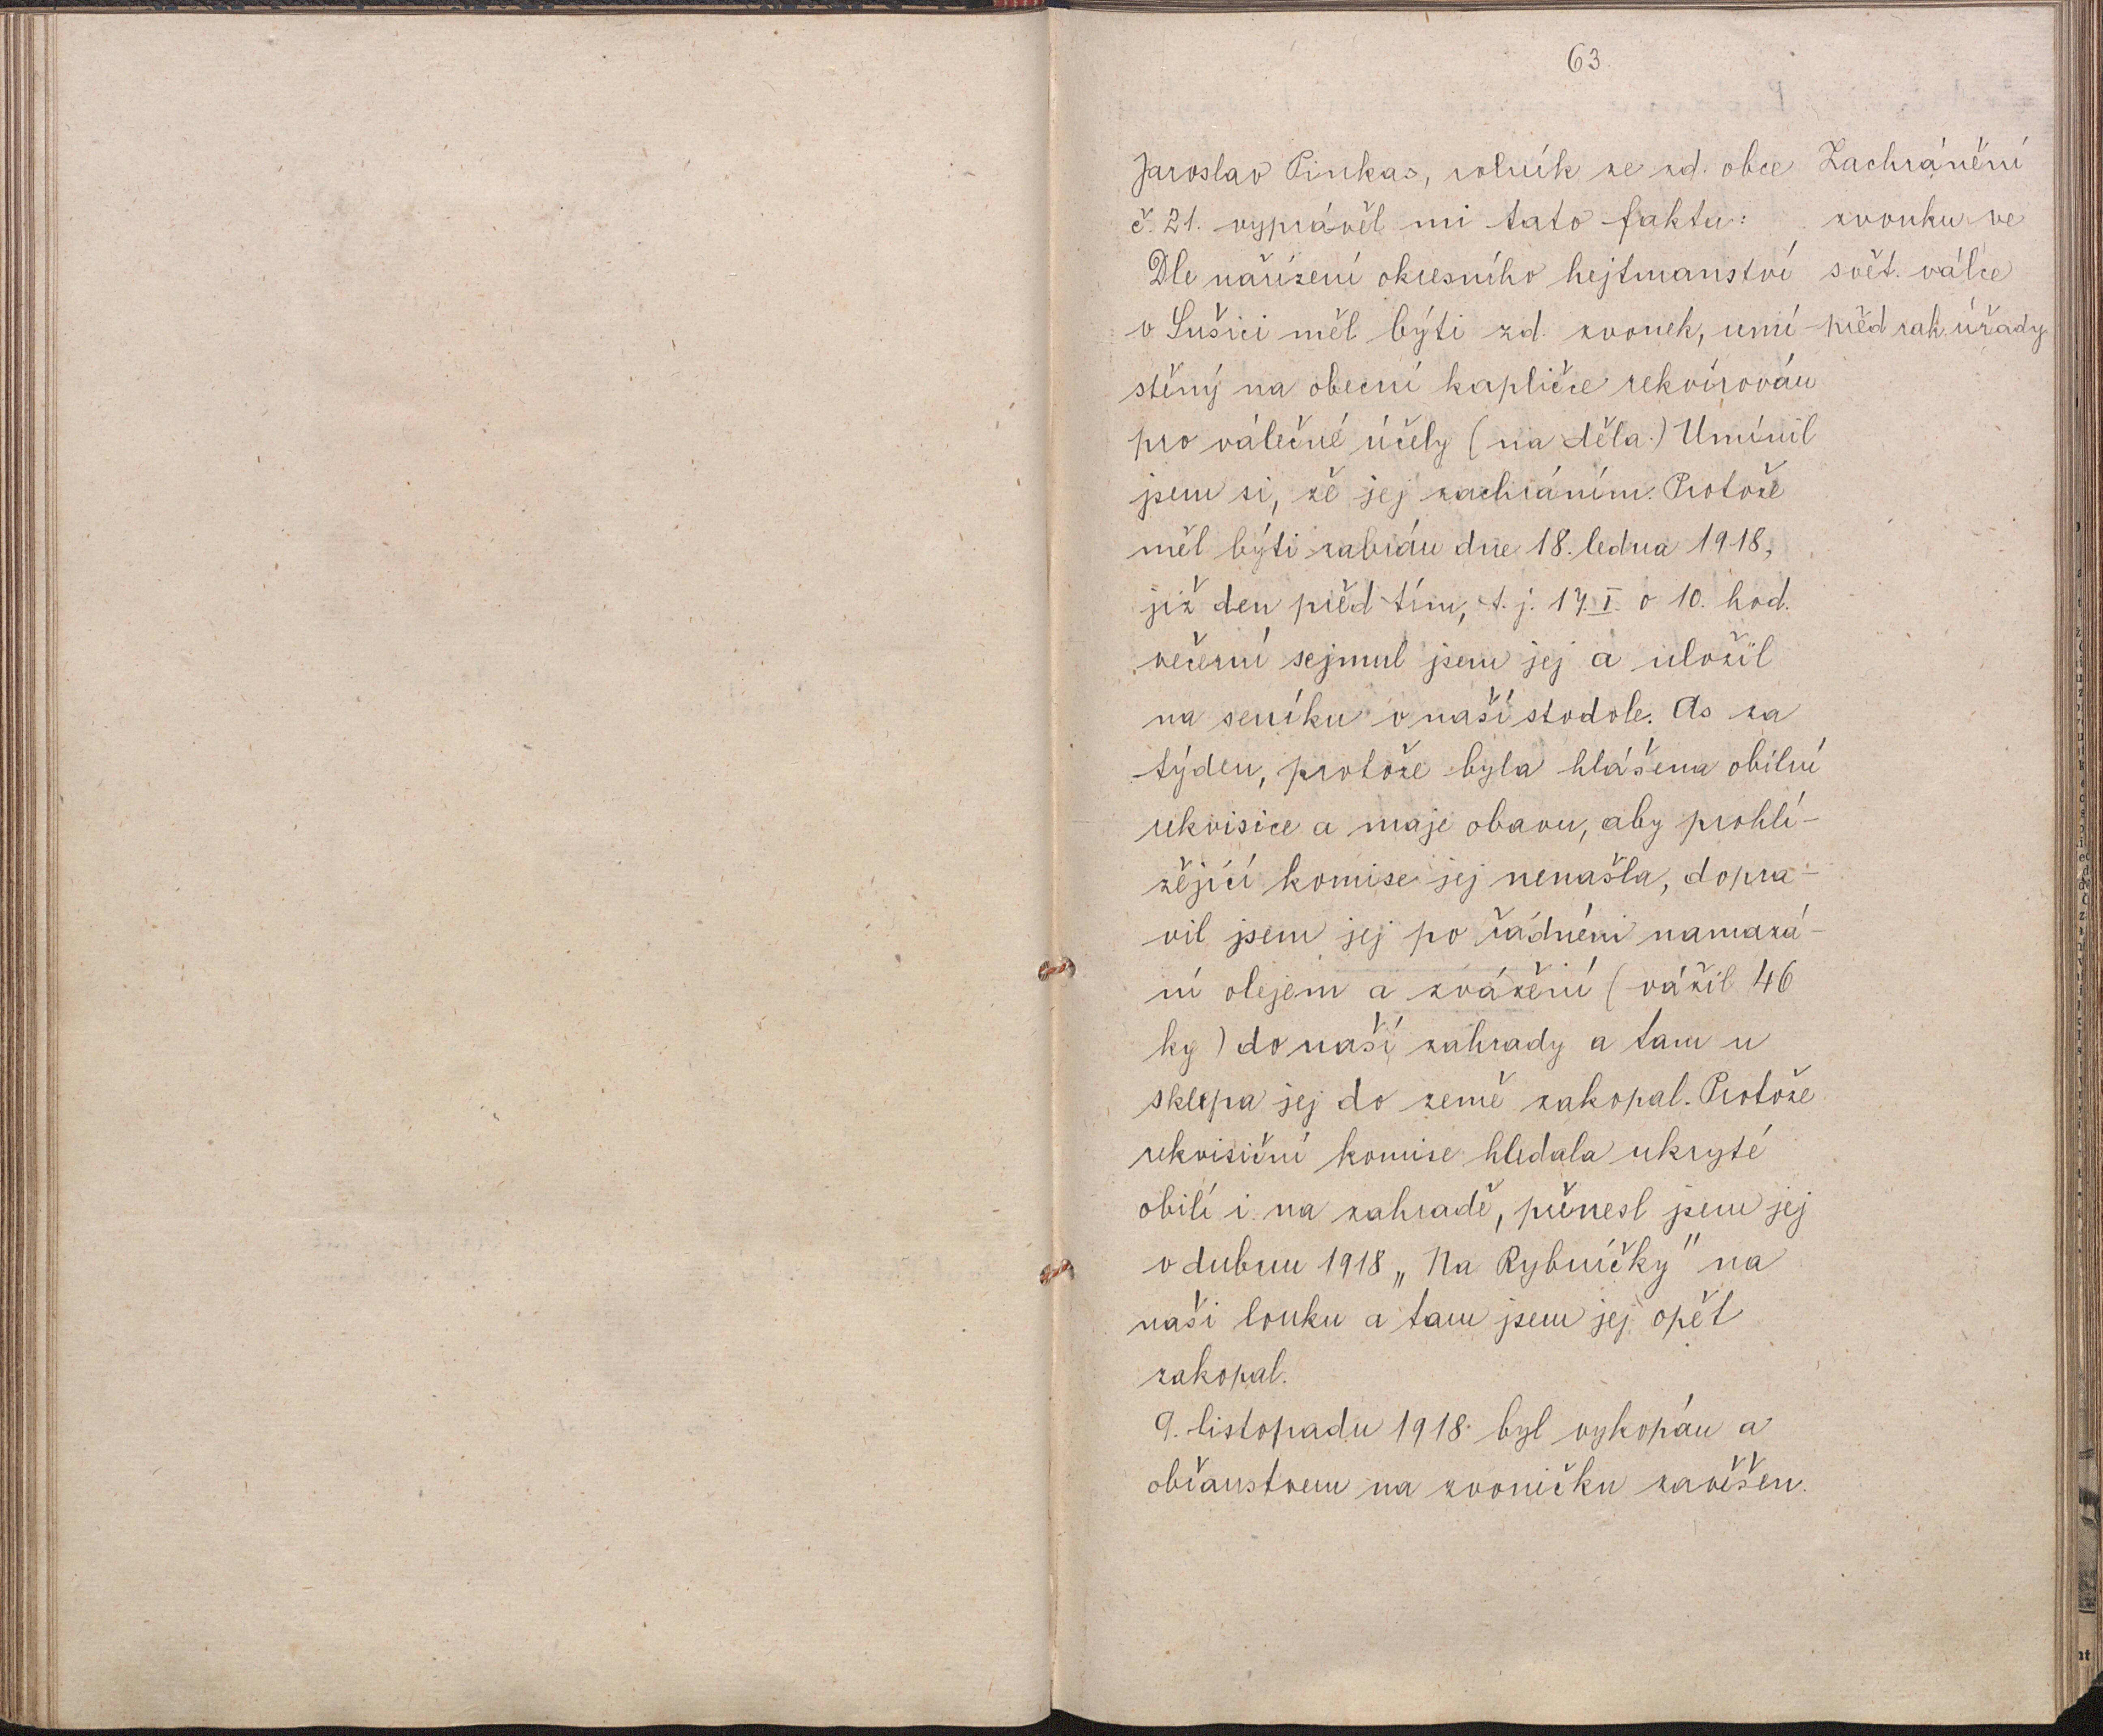 63
Jaroslav Pinkas, rolník ze zd. obce
č. 21. vyprávěl mi tato fakta:
Dle nařízení okresního hejtmanství
v Sušici měl býti zd. zvonek, umí-
stěný na obecní kapličce rekvírován
pro válečné účely (na děla.) Umínil
jsem si, že jej zachráním. Protože
měl býti zabrán dne 18. ledna 1918,
již den před tím, t. j. 17. I. o 10. hod.
večerní sejmul jsem jej a uložil
na seníku v naší stodole. As za
týden, protože byla hlášena obilní
rekvisice a maje obavu, aby prohlí-
žející komise jej nenašla, dopra-
vil jsem jej po řádném namazá-
ní olejem a zvážení (vážil 46
kg) do naší zahrady a tam u
sklepa jej do země zakopal. Protože
rekvisiční komise hledala ukryté
obilí i na zahradě, přenesl jsem jej
v dubnu 1918 „Na Rybníčky" na
naši louku a tam jsem jej opět
zakopal.
9. listopadu 1918 byl vykopán a
občanstvem na zvoničku zavěšen.
Zachránění
zvonku ve
svět. válce
před rak. úřady